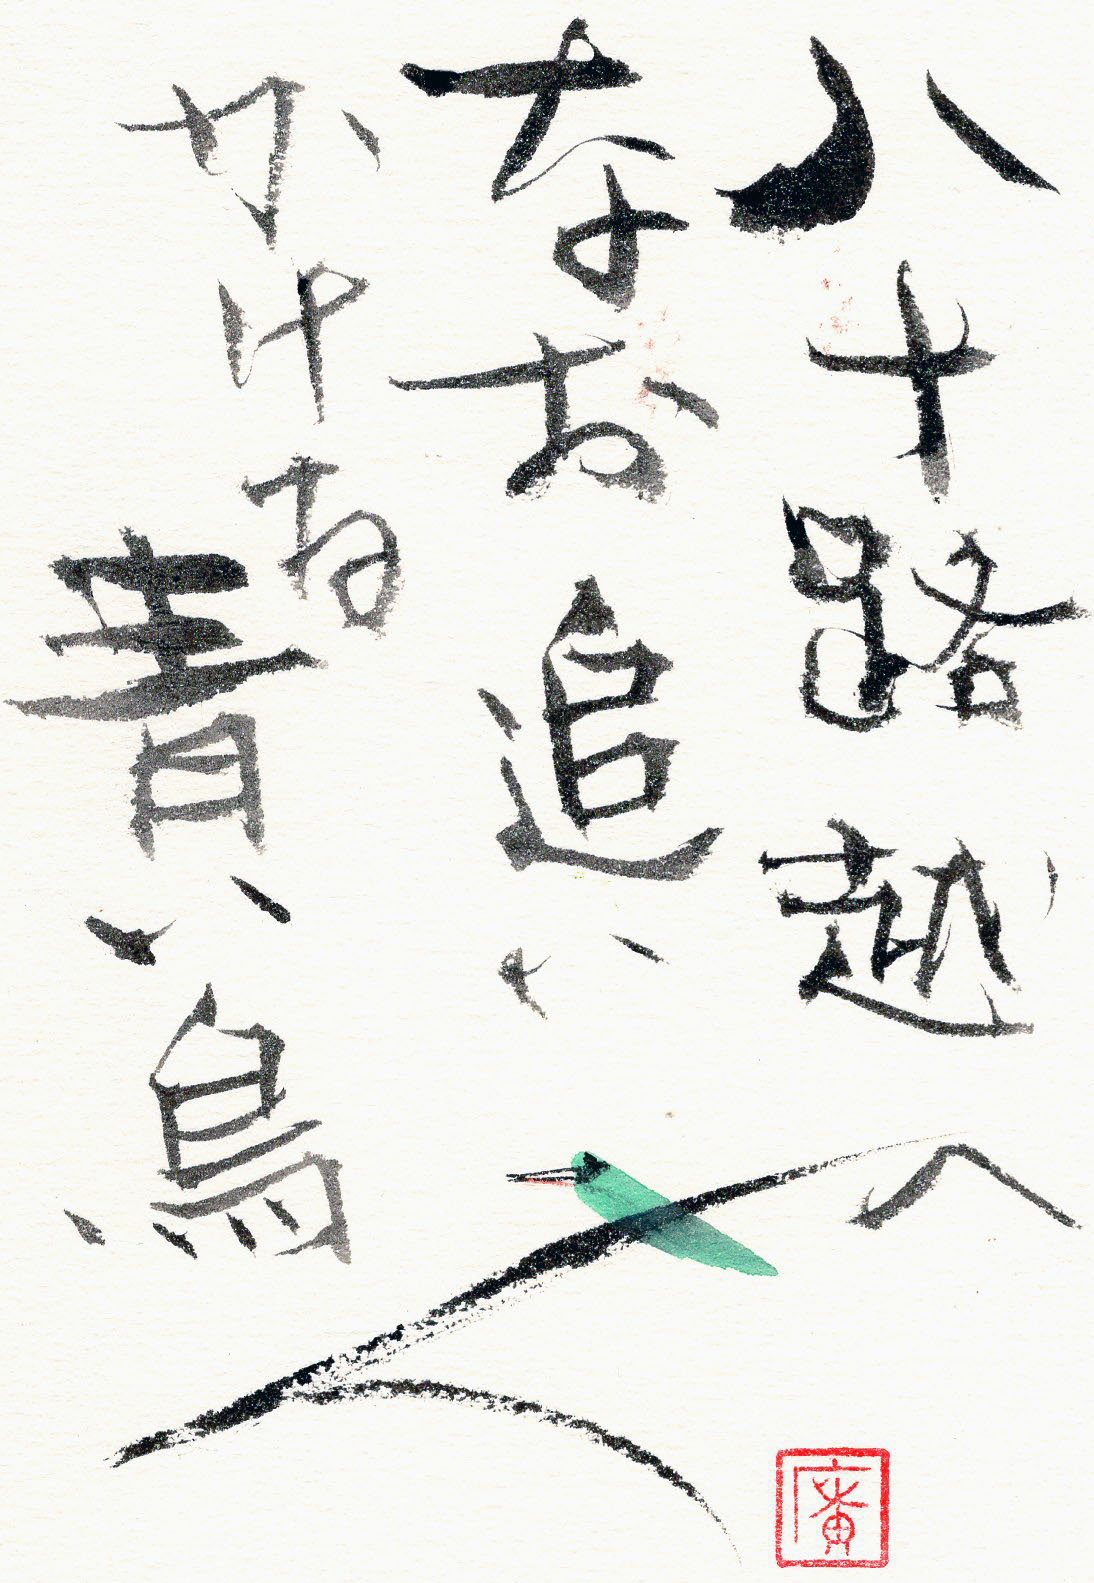 八十路越へ
なお追い
かけむ
青い鳥
廣